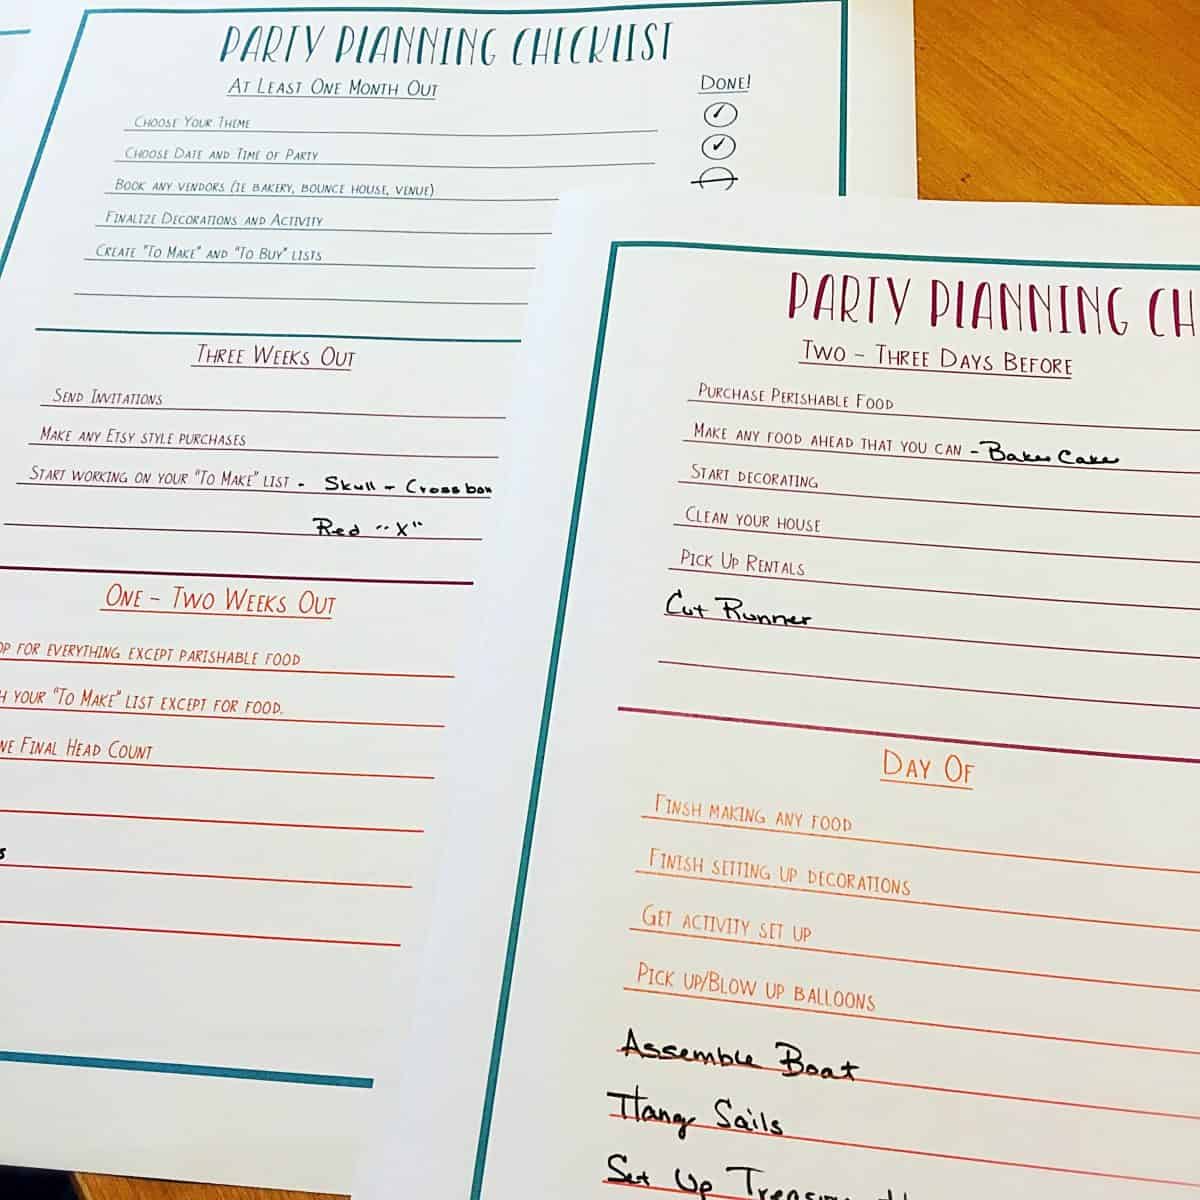 PARTY PLANNING CHECKLIST
AT LEAST ONE MONTH OUT
DONE!
CHOOSE YOUR THEME
CHOOSE DATE AND TIME OF PARTY
BOOK ANY VENDORS (IE BAKERY, BOUNCE HOUSE, VENUE)
FINALIZE DECORATIONS AND ACTIVITY
CREATE "TO MAKE" AND "TO BUY" LISTS
THREE WEEKS OUT
SEND INVITATIONS
MAKE ANY ETSY STYLE PURCHASES
START WORKING ON YOUR "TO MAKE" LIST - Skull + Crossbon
Red "X"
ONE - TWO WEEKS OUT
OP FOR EVERYTHING EXCEPT PARISHABLE FOOD
H YOUR "TO MAKE" LIST EXCEPT FOR FOOD.
NE FINAL HEAD COUNT
s
PARTY PLANNING CH
TWO - THREE DAYS BEFORE
PURCHASE PERISHABLE FOOD
MAKE ANY FOOD AHEAD THAT YOU CAN - Bake Cake
START DECORATING
CLEAN YOUR HOUSE
PICK UP RENTALS
Cut Runner
DAY OF
FINSH MAKING ANY FOOD
FINISH SETTING UP DECORATIONS
GET ACTIVITY SET UP
PICK UP/BLOW UP BALLOONS
Assemble Boat
Hang Sails
Set Up